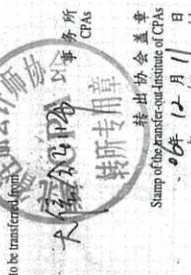 to be transferred from
事务所
CPAs
师协
CPA
转所专用章
转出协会盖章
Stamp of the transfer-out Institute of CPAs
年12月11日